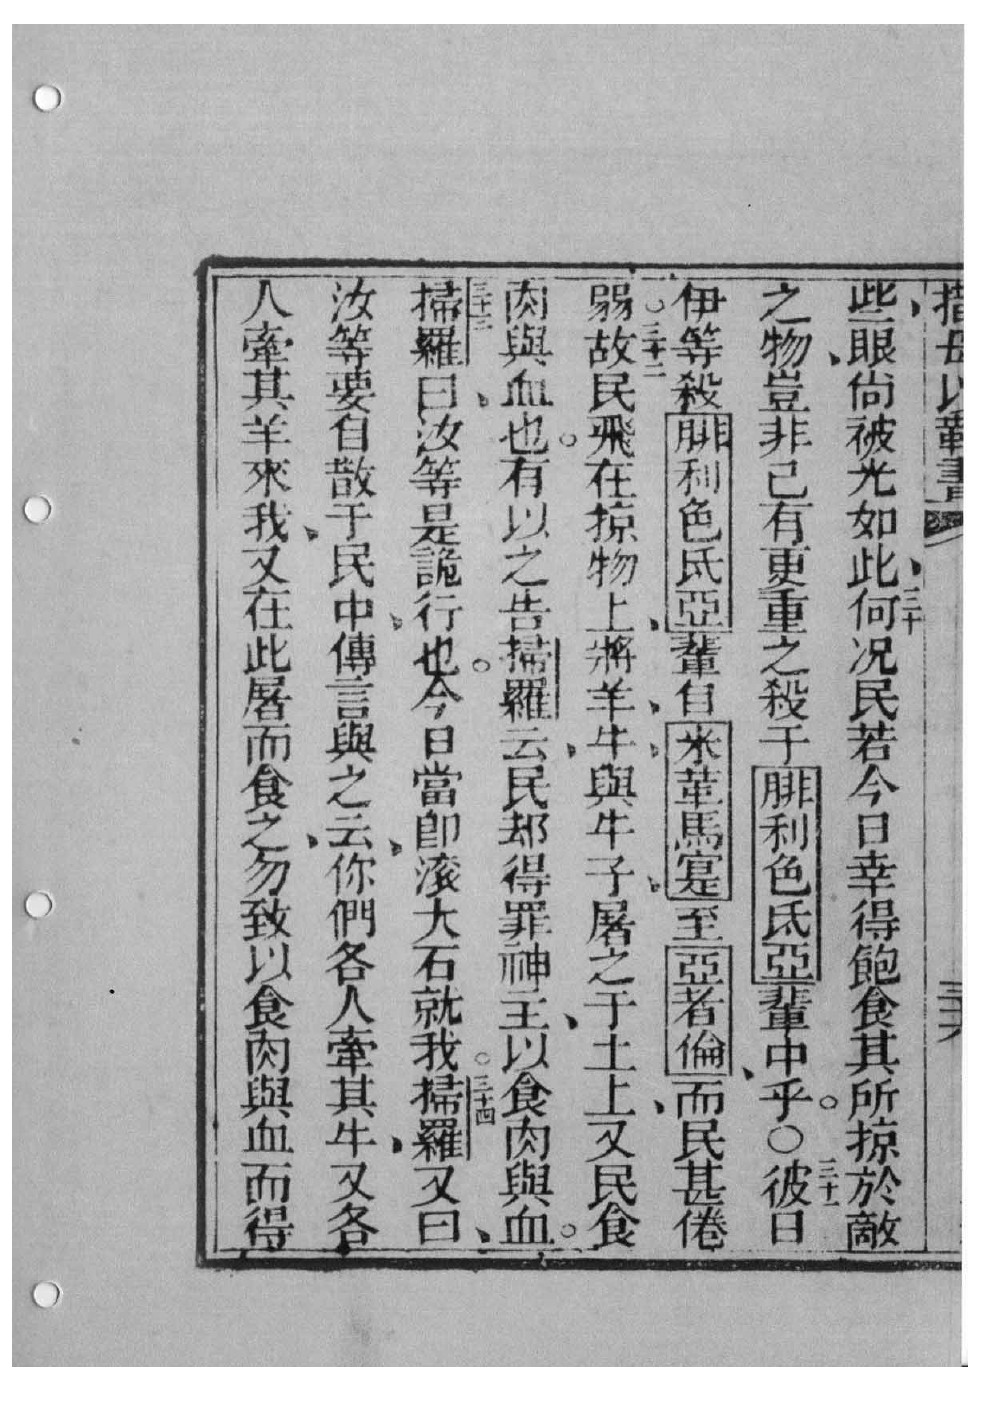 些眼尙被光如此何况民若今日幸得飽食其所掠於敵
三十
之物豈非己有更重之殺于腓利色氐亞輩中乎〇彼日
三十一
伊等殺腓利色氐亞輩自米革馬寔至亞者倫而民甚倦
弱故民飛在掠物上將羊牛與牛子屠之于土上又民食
三十二
肉與血也有以之告掃羅云民却得罪神主以食肉與血
掃羅曰汝等是詭行也今日當卽滚大石就我掃羅又曰
三十三
三十四
汝等要自散于民中傳言與之云你們各人牽其牛又各
人牽其羊來我又在此屠而食之勿致以食肉與血而得